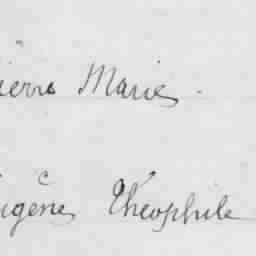 ierre Marie.
ugène Théophile